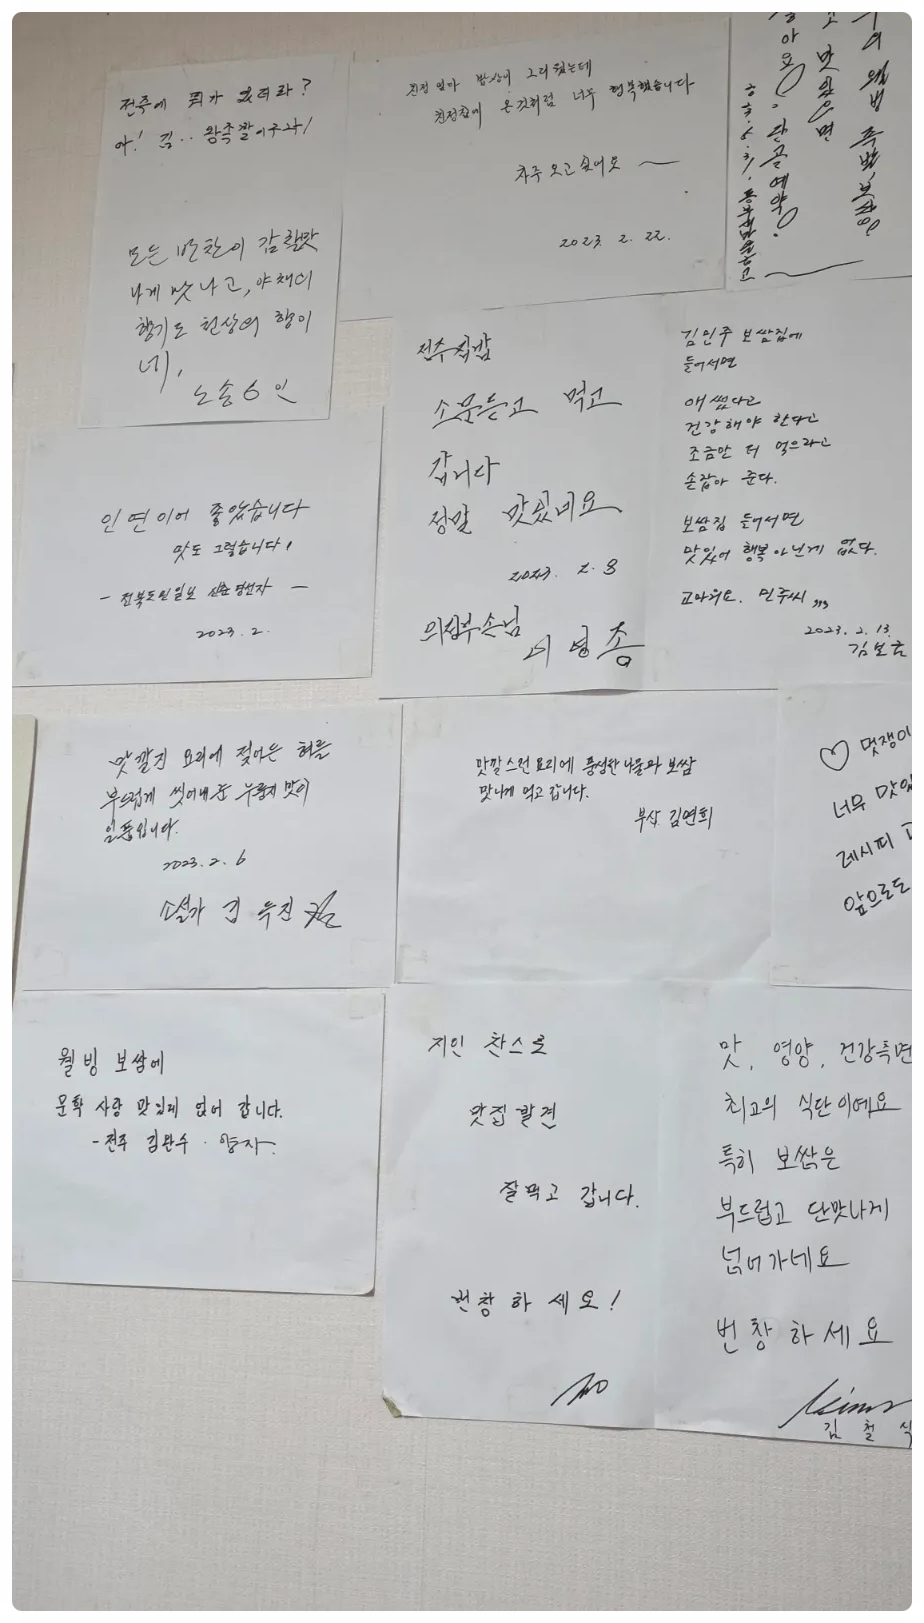 전주에 뭐가 있더라?
아! 김.. 왕족발이구나!
모든 반찬이 감칠맛
나게 맛나고, 야채의
향기도 천상의 향이
네,
노송 6인
친정엄마 밥상이 그리웠는데
친정집에 온것처럼 너무 행복했습니다
자주 오고 싶어요
2023. 2. 22.
족발, 보쌈
맛있으면
단골예약
전주
소문듣고 먹고
갑니다
정말 맛있네요
2023. 2. 8
의정부손님
김민주 보쌈집에
들어서면
애썼다고
건강해야 한다고
조금만 더 먹으라고
손잡아 준다.
보쌈집 들어서면
맛있어 행복 아닌게 없다.
고마워요. 민주씨,,,
2023. 2. 13.
김보금
인연이어 좋았습니다
맛도 그렇습니다!
- 전북도민일보 신춘 당선자 -
2023. 2.
맛깔진 요리에 젖어든 혀를
부드럽게 씻어내는 누룽지 맛이
일품입니다.
2023. 2. 6
소설가 김
맛깔스런 요리에 풍성한 나물과 보쌈
맛나게 먹고 갑니다.
부산 김연희
♡ 멋쟁이
너무 맛있
레시피
앞으로도
웰빙 보쌈에
문학 사랑 맛있게 얹어 갑니다.
- 전주 김완수
지인 찬스로
맛집 발견
잘먹고 갑니다.
번창 하 세요!
맛, 영양, 건강측면
최고의 식단이에요
특히 보쌈은
부드럽고 단맛나게
넘어가네요
번창하세요
김철식